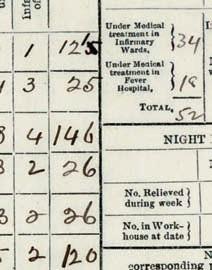 Under Medical
treatment in
Infirmary
Wards,
34
Under Medical
treatment in
Fever
Hospital,
18
TOTAL,
52
NIGHT
No. Relieved
during week
No. in Work-
house at date
corresponding
1 125
3 25
4 146
2 26
2 26
2 120